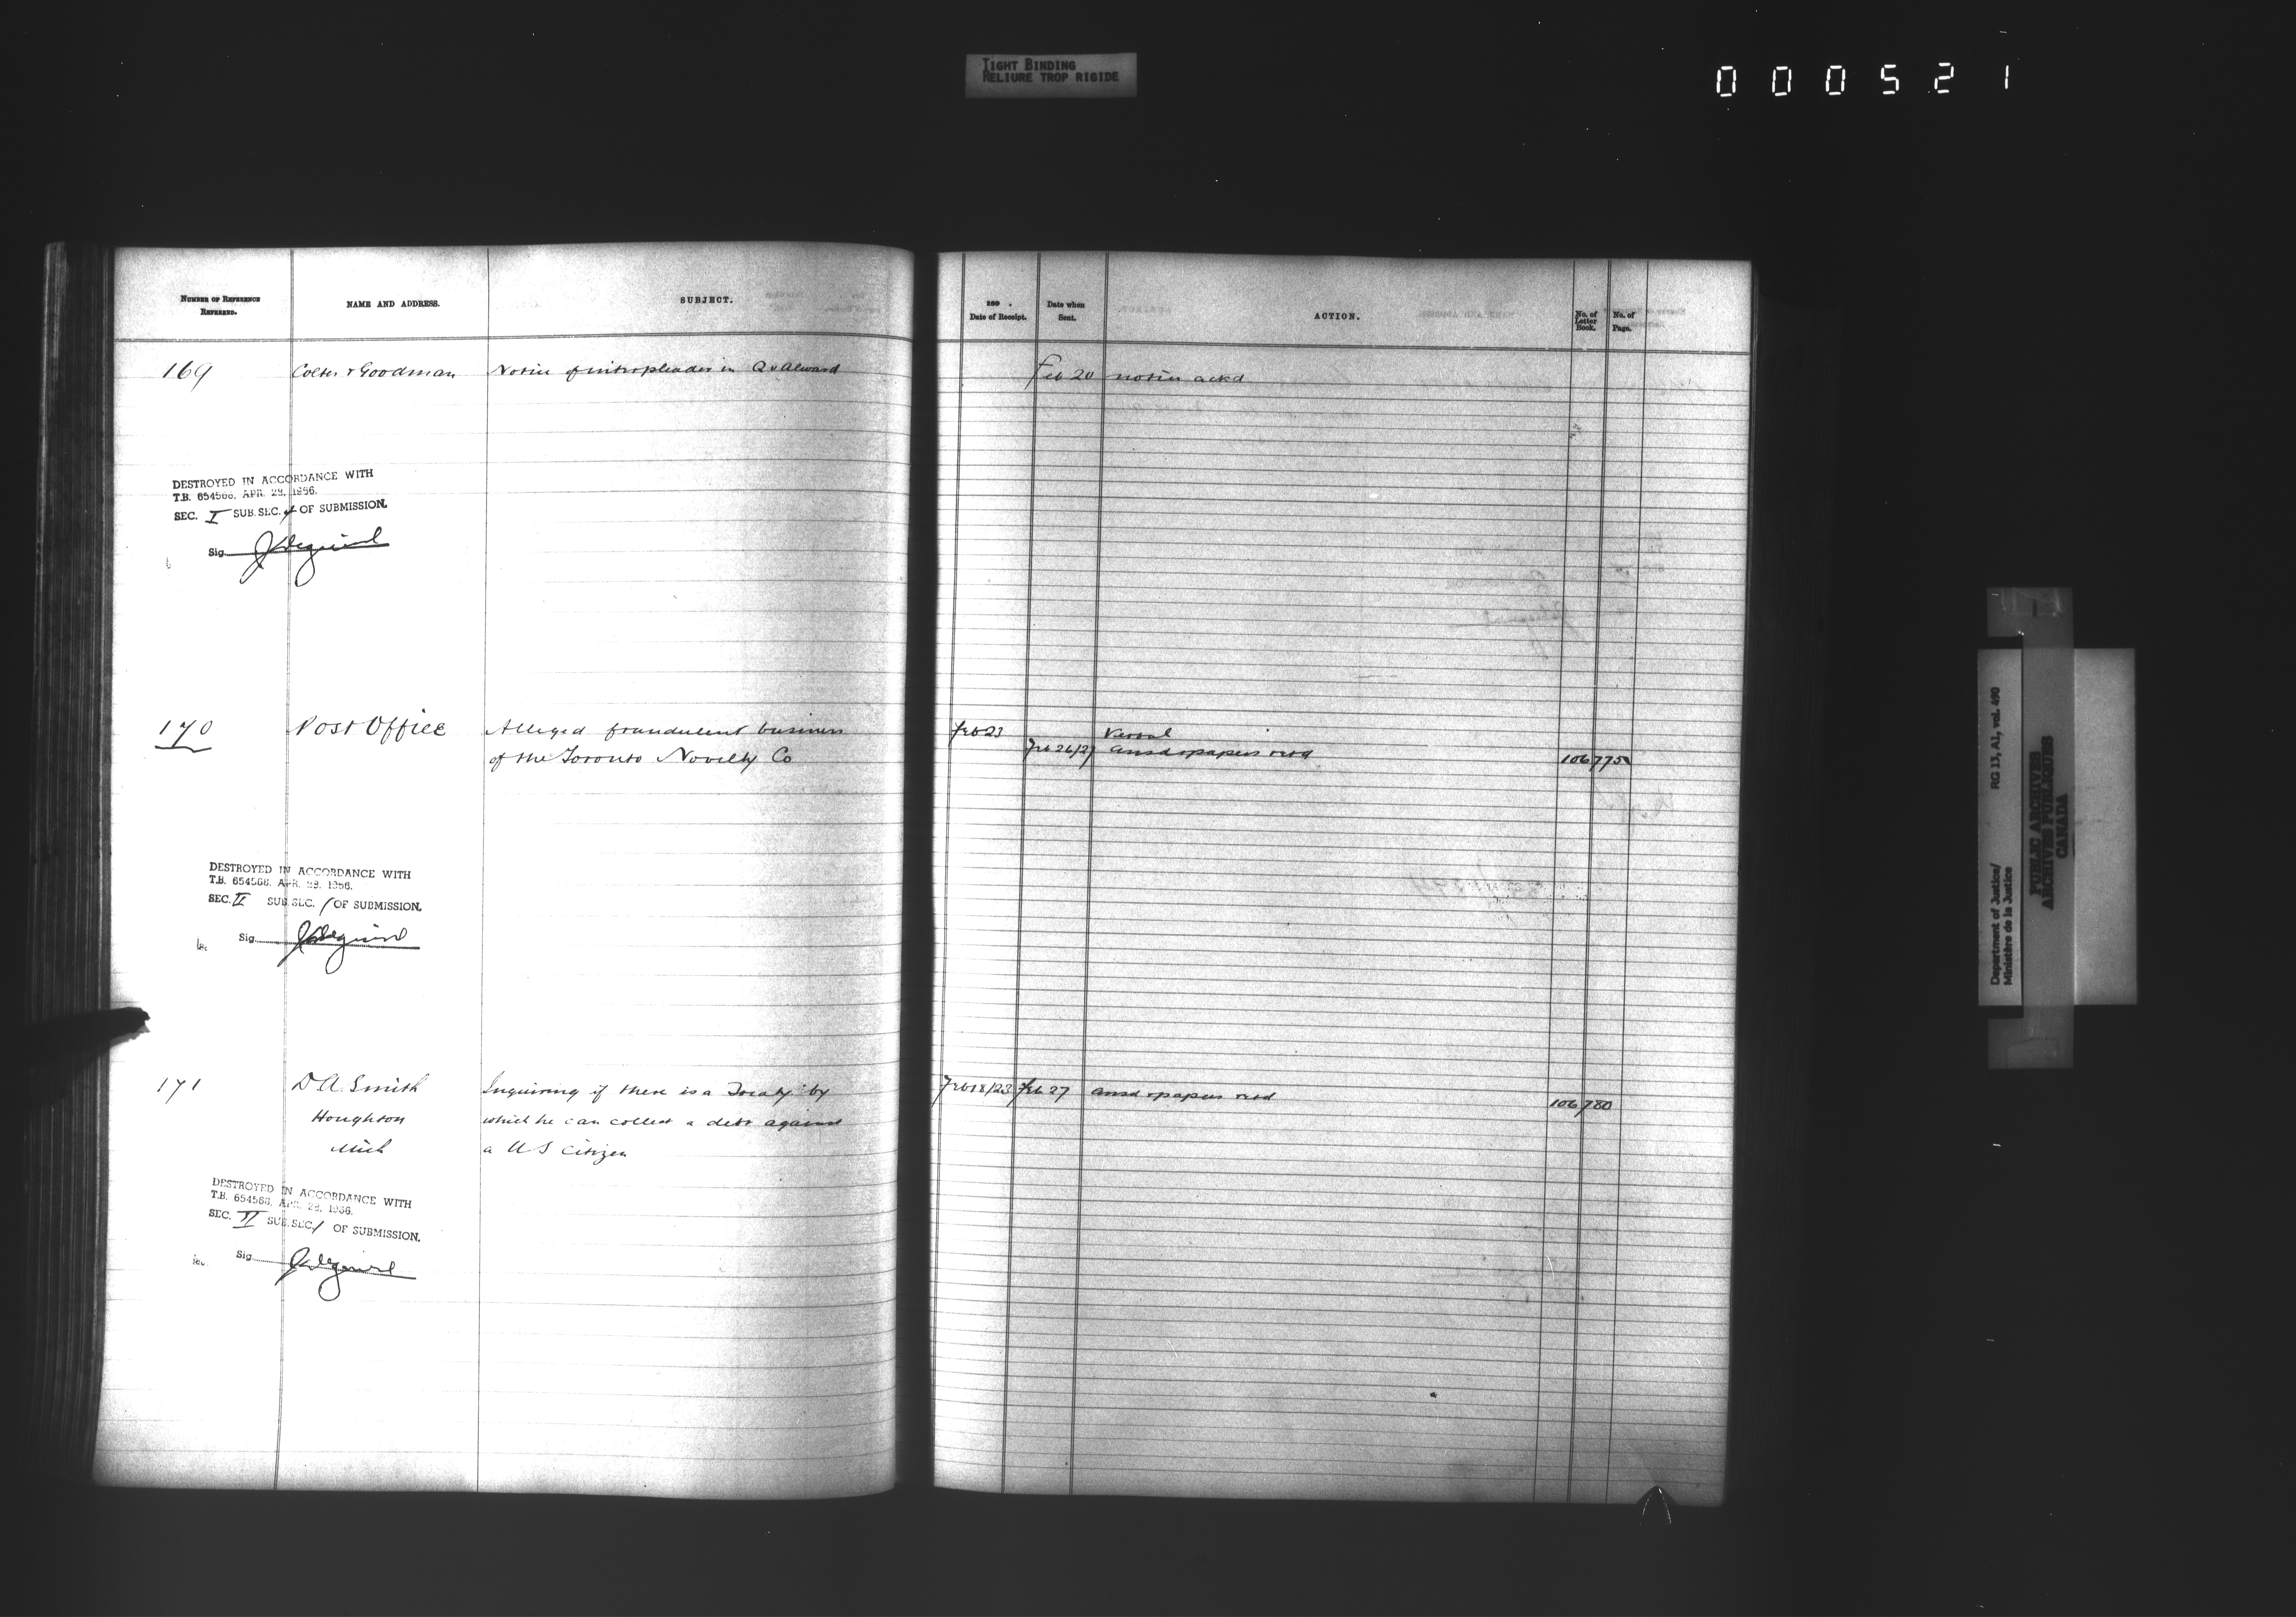 TIGHT BINDING
RELIURE TROP RIGIDE
000521
NUMBER OF REFERENCE REFERRED.
NAME AND ADDRESS.
SUBJECT.
189 .
Date of Receipt.
Date when Sent.
ACTION.
No. of Letter Book.
No. of Page.
169 Colter & Goodman Notice of interpleader in Q v Alward Feb 20 notice ackd
DESTROYED IN ACCORDANCE WITH
T.B. 654566, APR. 29, 1956.
SEC. I SUB.SEC. OF SUBMISSION.
Sig.
170 Post Office Alleged fraudulent business Feb 23
of the Toronto Novelty Co Feb 26/27 ansd & papers retd 106 775
DESTROYED IN ACCORDANCE WITH
T.B. 654566, APR. 29, 1956.
SEC. II SUB.SEC. 1 OF SUBMISSION.
Sig.
171 D A. Smith Inquiring if there is a Treaty by Feb 18/23 Feb 27 ansd & papers retd 106 780
Houghton which he can collect a debt against
Mich a U S citizen
DESTROYED IN ACCORDANCE WITH
T.B. 654566, APR. 29, 1956.
SEC. SUB.SEC. 1 OF SUBMISSION.
Sig.
Department of Justice/ RG 13, A1, vol. 490
Ministère de la Justice
PUBLIC ARCHIVES
ARCHIVES PUBLIQUES
CANADA